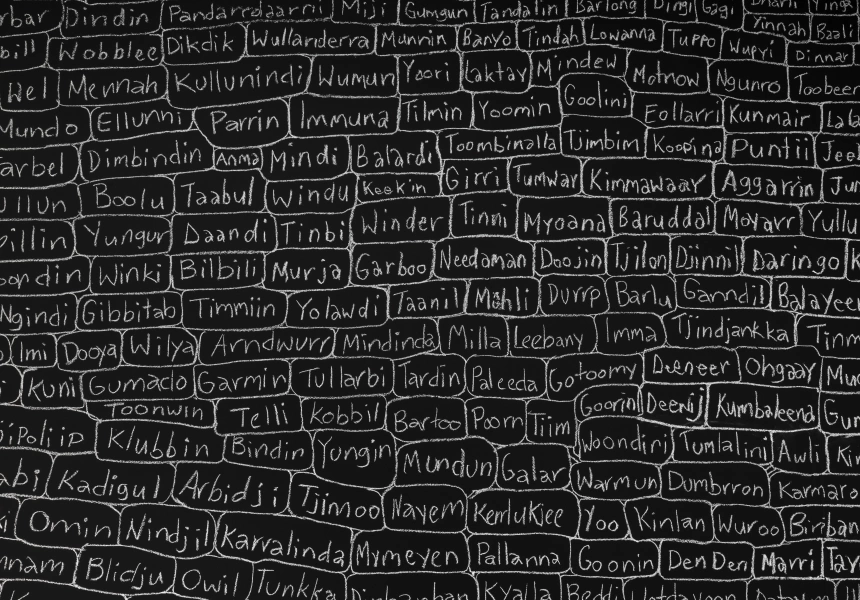 Dindin Pandaredaarnii Miji Gumgun Tandalin Barlong Dingi Gagi
Wobblee Dikdik Wullariderra Munnin Banyo Tindah Lowanna Tuppo Wupyi Yinnah Baali
Wel Mennah Kullunindi Wumun Yoori Laktay Mindew Motnow Ngunro Dinnar
Mundo Ellunni Parrin Immuna Tilmin Yoomin Goolini Eollarri Kunmair
Dimbindin Anma Mindi Balardi Toombinalla Tjimbim Koopina Puntii
Boolu Taabul Windu Keekin Girri Tumwar Kimmawaar Aggarrin
Yungur Daandi Tinbi Winder Tinni Myoana Baruddal Moyarr
Winki Bilbili Murja Garboo Needaman Doojin Tjilon Djinnil Daringo
Ngindi Gibbitab Timmiin Yolawdi Taanil Mohli Durrp Barlu Ganndil
Imi Dooya Wilya Arndwurr Mindinda Milla Leebany Imma Tjindjankka
Kuni Gumado Garmin Tullarbi Tardin Paleeda Gotoomy Deeneer Ohgaay
Toonwin Telli Kobbil Bartoo Poorn Tiim Goorin Deenij Kumbaleena
Klubbin Bindin Yungin Mundun Galar Woondiri Tumlalini Awli
Kadigul Arbidji Tjimoo Nayem Kerrlukjee Warmun Dumbrron Karmaro
Omin Nindjil Karvalinda Mymeyen Pallanna Yoo Kinlan Wuroo
Blidju Owil Tunkka Kyalla Beddi Goonin DenDen Marri